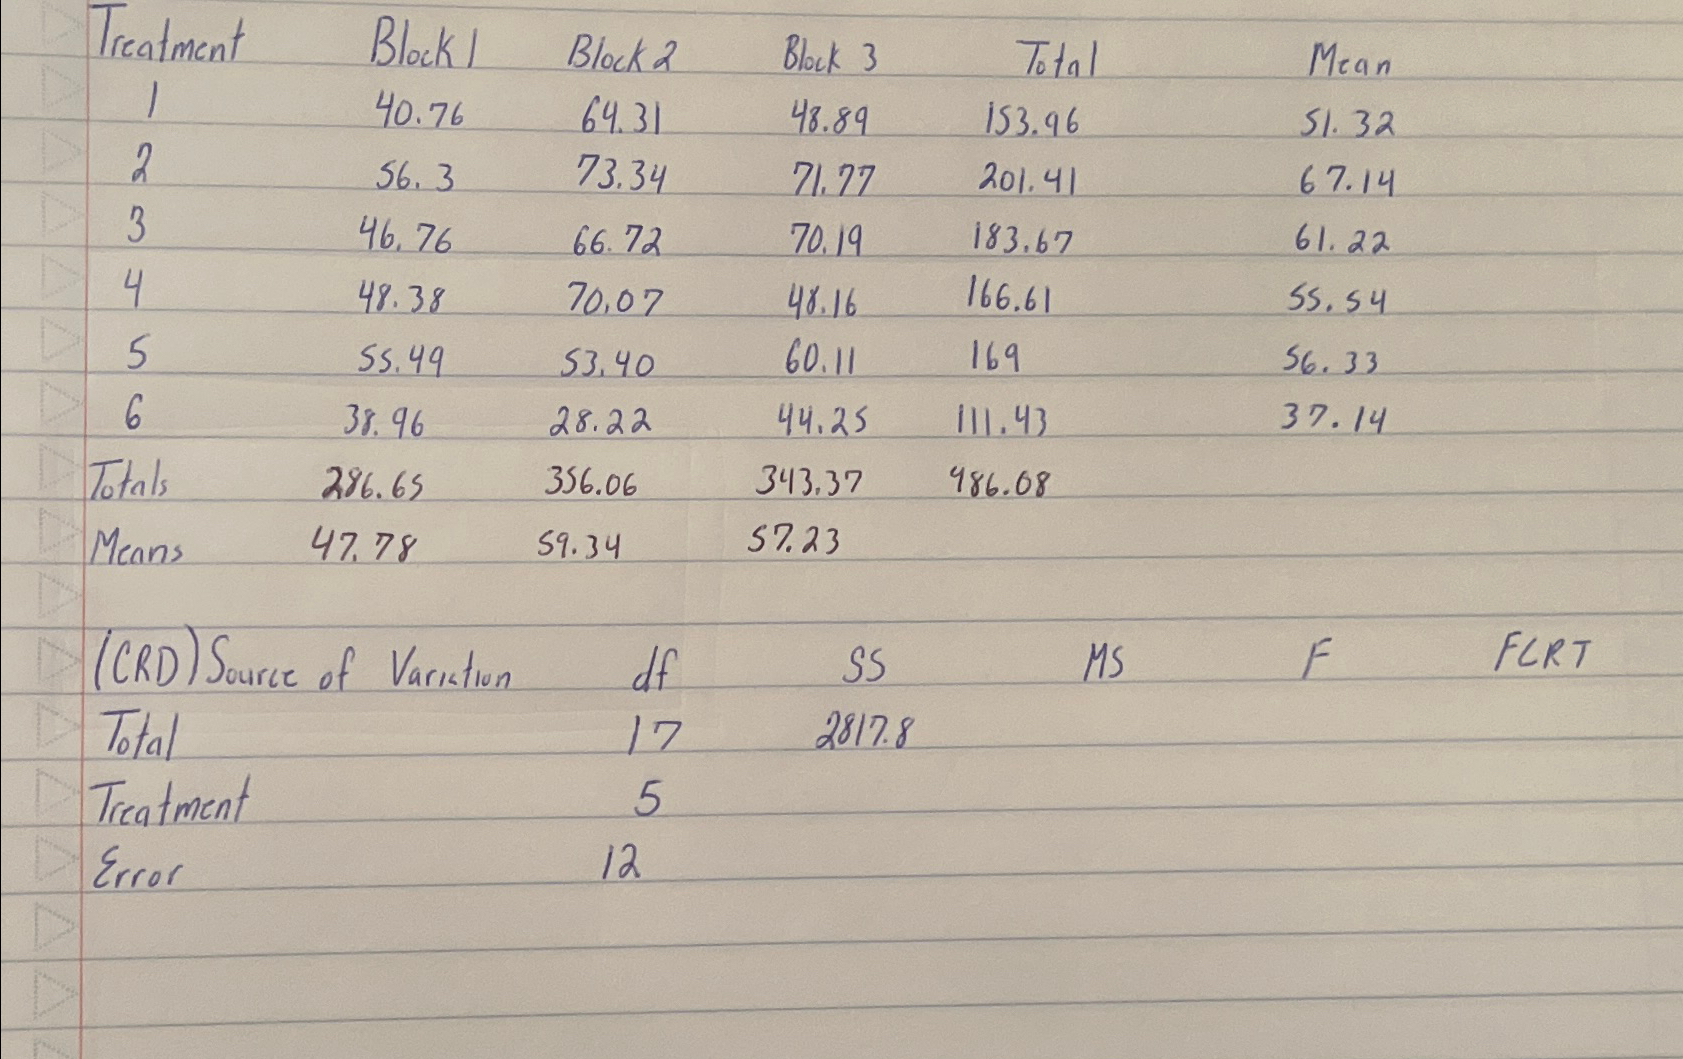 Treatment Block 1 Block 2 Block 3 Total Mean
1 40.76 64.31 48.89 153.96 51.32
2 56.3 73.34 71.77 201.41 67.14
3 46.76 66.72 70.19 183.67 61.22
4 48.38 70.07 48.16 166.61 55.54
5 55.49 53.40 60.11 169 56.33
6 38.96 28.22 44.25 111.43 37.14
Totals 286.65 356.06 343.37 986.08
Means 47.78 59.34 57.23
(CRD) Source of Variation df SS MS F FCRT
Total 17 2817.8
Treatment 5
Error 12